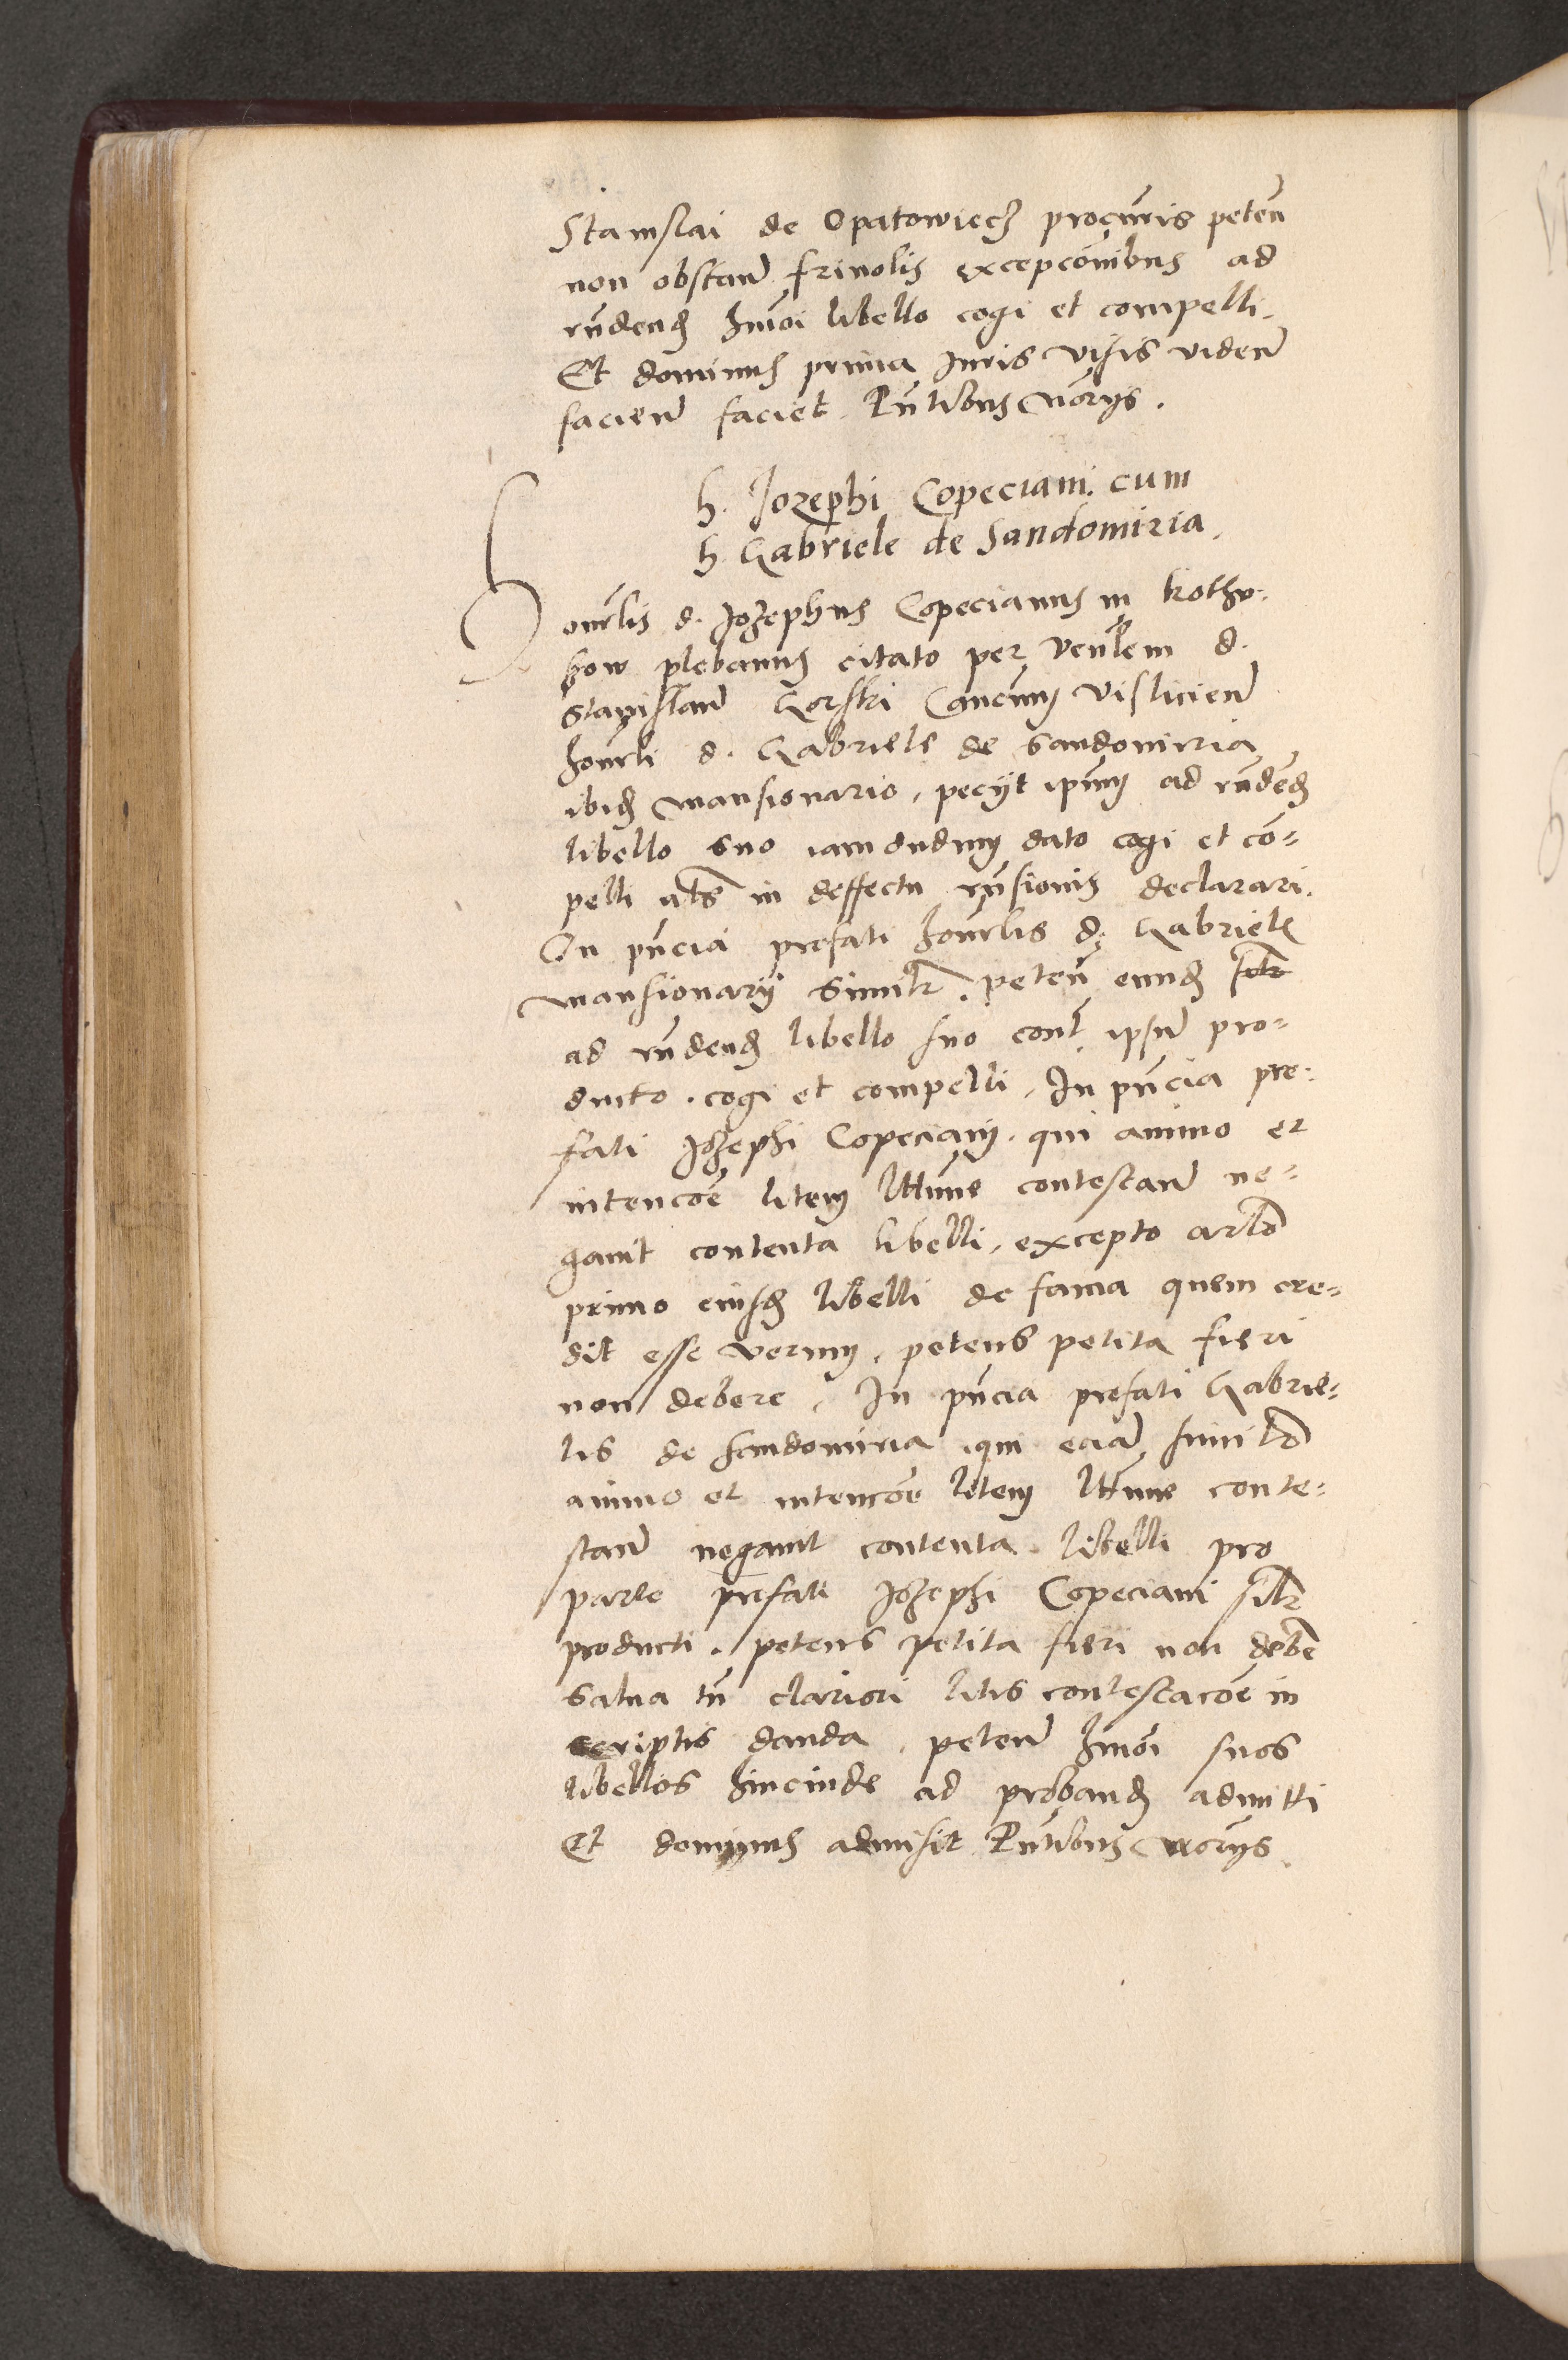 Stanislai de Opatowiecz procuris peten
non obstan frivolis excepconibus ad
rndend hmoi libello cogi et compelli.
Et dominus prima Juris visis viden
facien faciet. Pntibus Noriis.
h. Jozephi Copeciani cum
h. Gabriele de Sandomiria.
Honrlis d. Jozephus Copecianus in Kothu-
kow plebanus citato per Venlem d.
Stanislau Gorski Cancum Vislicien
honrli d. Gabriele de Sandomiria
ibid mansionario, peciit ipsum ad rndend
libello suo iamdudum dato cogi et com-
pelli als in deffectu rnsionis declarari.
In pncia prefati honrlis d. Gabrielis
mansionarii similr. peten eund
ad rndend libello suo cont ipsum pro-
ducto. cogi et compelli. In pncia pre-
fati Jozephi Copeciani. qui animo et
intencoe litem lttime contestan ne-
gavit contenta libelli, excepto arlo
primo eiusd libelli de fama quem cre-
dit esse verum, petens petita fieri
non debere, In pncia prefati Gabrie-
lis de Sandomiria qui eciam simili
animo et intencoe litem lttime conte-
stan negavit contenta libelli pro
parte prefati Jozephi Copeciani silr
producti. petens petita fieri non debe
salva tn clariori litis contestacoe in
scriptis danda, peten hmoi suos
libellos hincinde ad proband admitti
Et dominus admisit Pntibus Noriis.